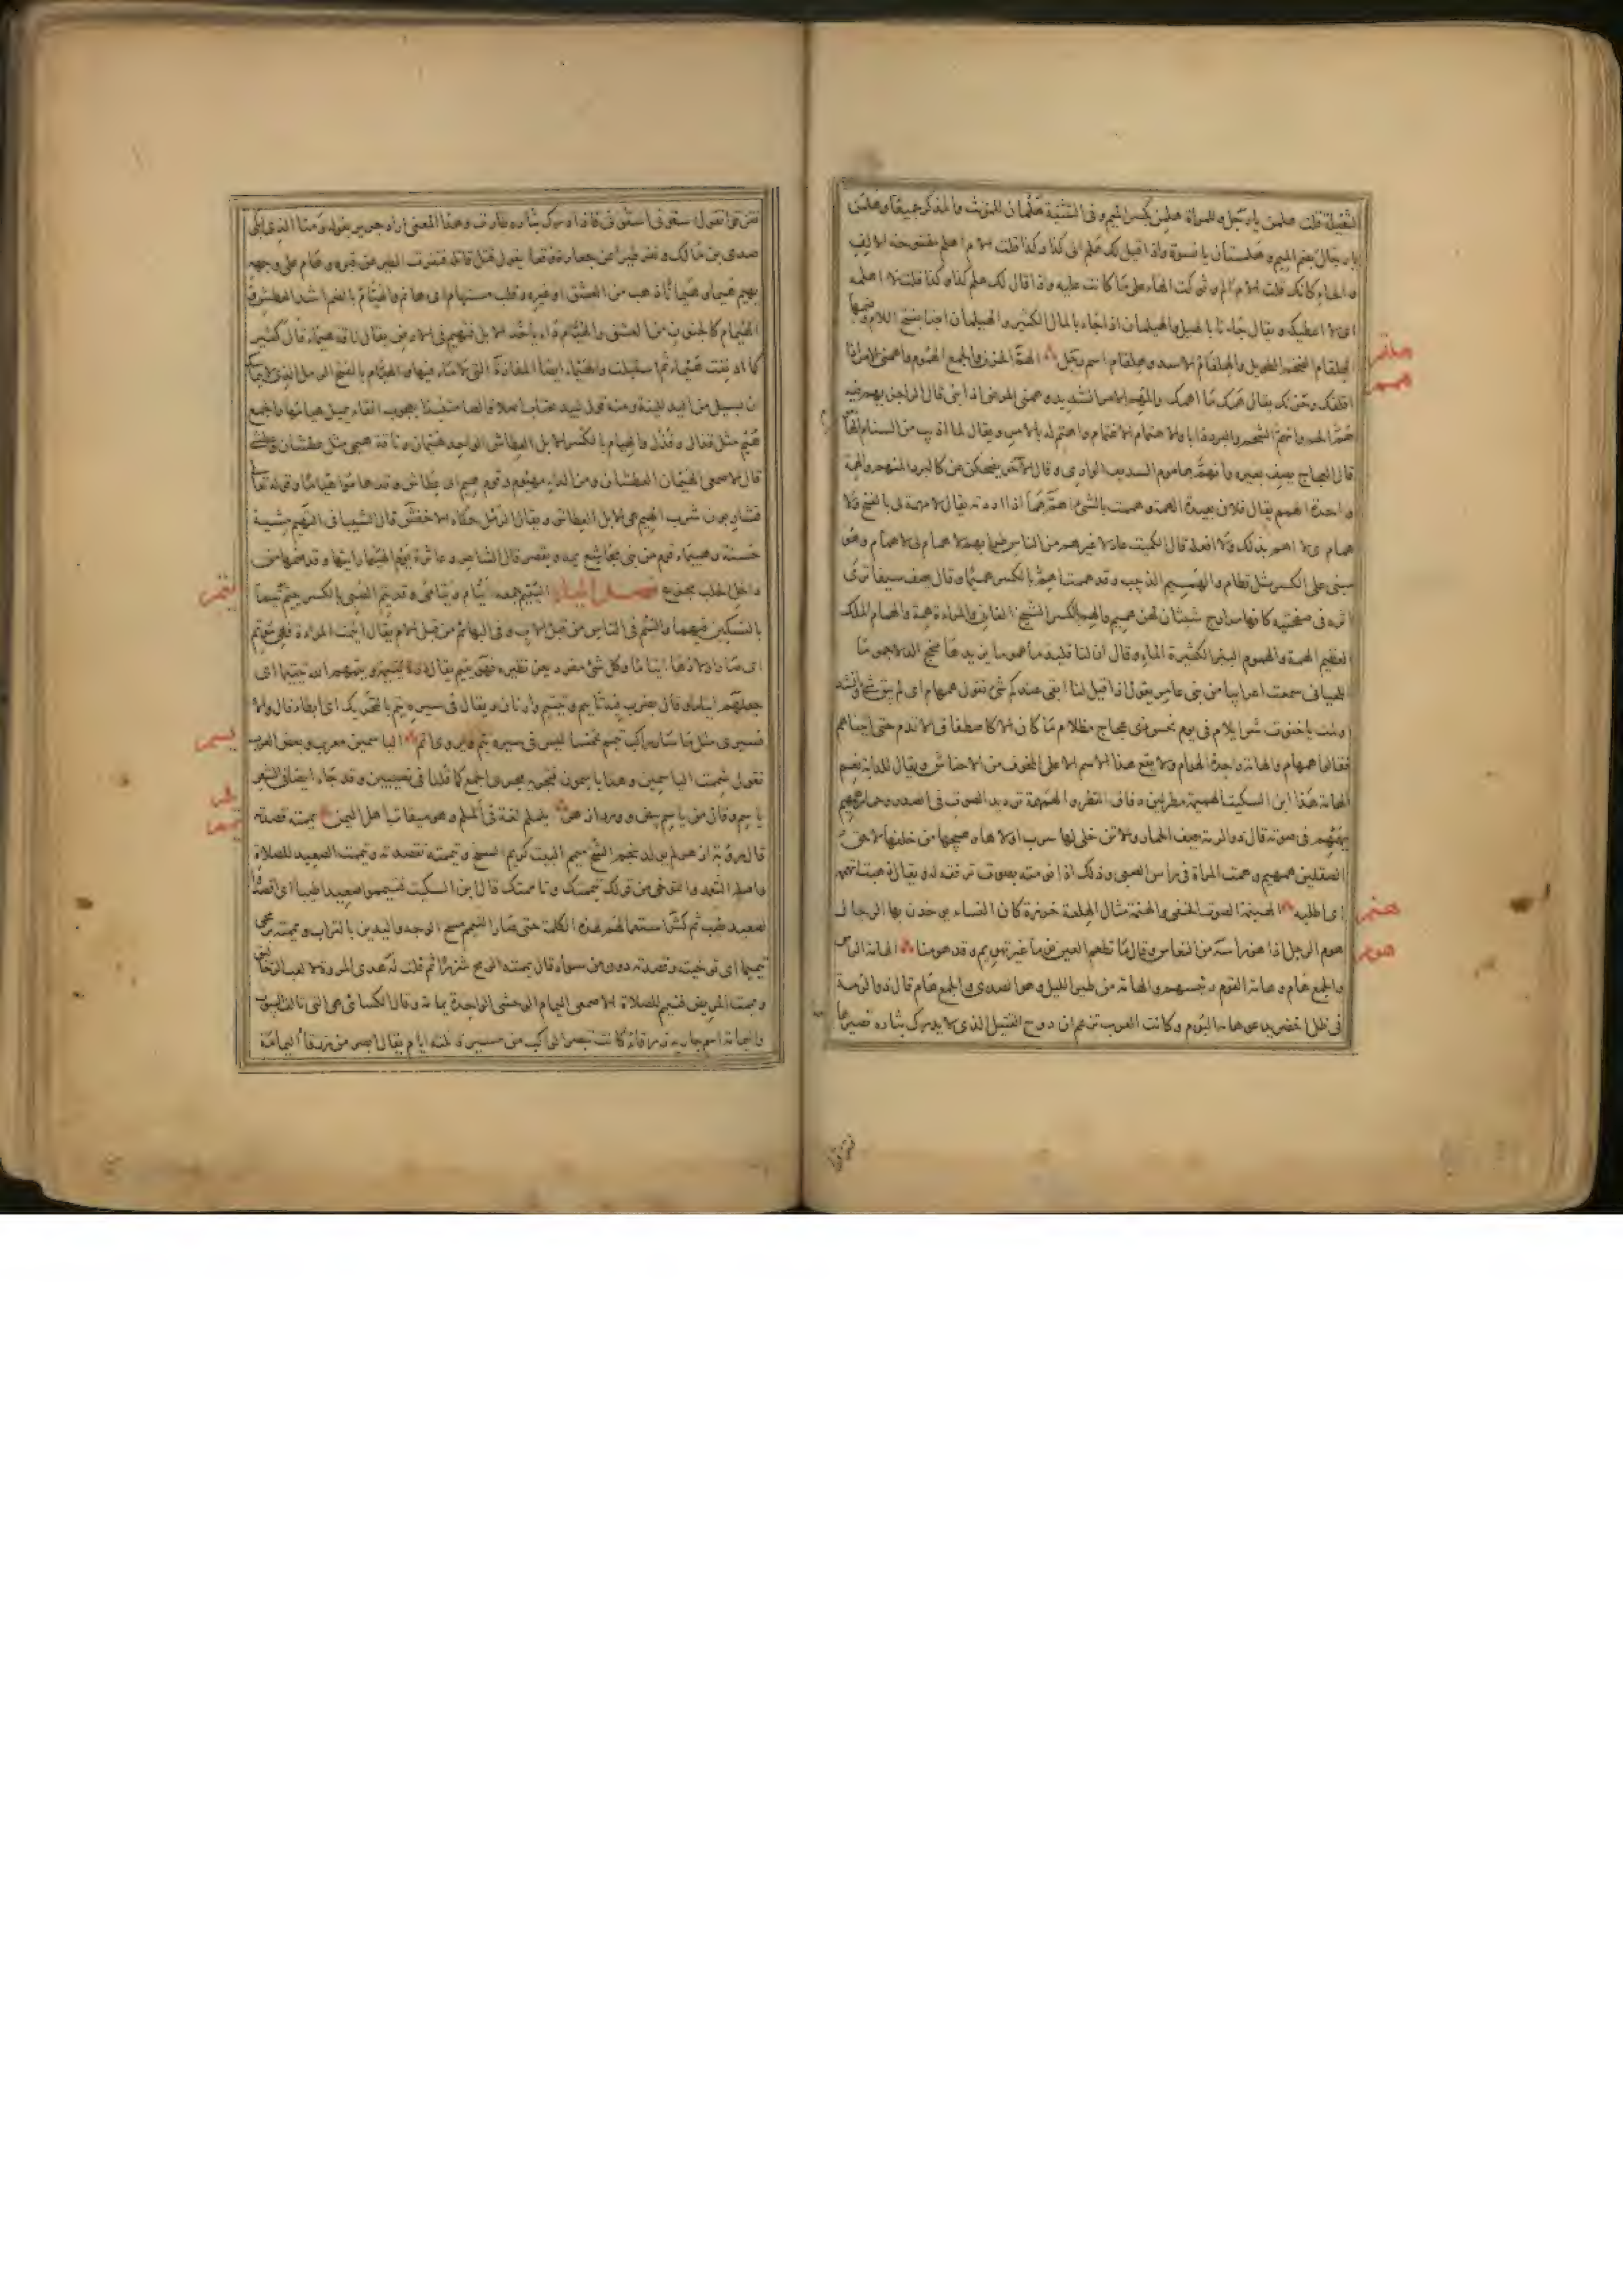 الثقيلة قلت هلمن يا رجل وللمرأة هلمن بكسر الميم وفي التثنية هلمان للمؤنث والمذكر جميعا وهلمن
يا رجال بضم الميم وهلممنان يا نسوة واذا قيل لك هلم الى كذا وكذا قلت الام اهلم مفتوحة الالف
والهاء كانك قلت الام الم وتركت الهاء على ما كانت عليه واذا قال لك هلم كذا وكذا قلت لا اهلمه
اى لا اعطيكه ويقال جاءنا بالهيل والهيلمان اذا جاء بالمال الكثير والهيلمان ايضا بفتح اللام وضمها
هلقم
الهلقام الضخم الطويل والهلقام الاسد وهلقام اسم رجل الهم الحزن والجمع الهموم واهمني الامر اذا
همم
اقلقك وحزنك يقال همك ما اهمك والمهم الامر الشديد وهمني المرض اذا بني قال الراجز يهم فيه
هم الحم وانهم الشحم والبرد ذابا والاهتمام الاغتمام واهتم له بالامر ويقال لما اذيب من السنام
قال العجاج يصف بعيره وانهم هاموم السديف الوارى وقال الآخر يضحكن عن كالبرد المنهم والهمة
واحدة الهمم يقال فلان بعيد الهمة وهممت بالشئ اهم هما اذا اردته يقال لا مهمة لي بالفتح ولا
همام اى لا اهم بذلك ولا افعله قال الكميت عادلا غيرهم من الناس طرا بهم لا همام لي لا همام وهو
مبني على الكسر مثل قطام والهميم الدبيب وقد هممت اهم بالكسر هميما وقال يصف سيفا ترى
اثره في صفحتيه كانه مدارج شبثان لهن هميم والهم بالكسر الشيخ الفاني والمراءة همة والهمام الملك
العظيم الهمة والهموم البئر الكثيرة الماء وقال ان لنا قليذما هموما يزيدها مخج الدلا جموما
اللحياني سمعت اعرابيا من بني عامر يقول اذا قيل لنا ابقى عندكم شئ نقول همهام اى لم يبق شئ وانشد
اولمت يا خنوت شر ايلام في يوم نحس ذي عجاج مظلام ما كان الا كاصطفاق الاقدم حتى اتيناهم
فقالوا همهام والهامة واحدة الهوام ولا يقع هذا الاسم الا على المخوف من الاحناش ويقال للدابة نعم
الهامة هذا ابن السكيت الهميمة مطر لين دقاق القطر والهمهمة ترديد الصوت في الصدر وحمار همهيم
يهمهم في صوته قال ذو الرمة يصف الحمار والاتن خلى لها سرب اولاها وهيجها من خلفها لاحق
الصقلين همهيم وهمت المرأة في رأس الصبي وذلك اذا نومته بصوت ترققه له ويقال ذهبت اتهممه
هنم
اى اطلبه الهينمة الصوت الخفي والهنمة مثال الهلعة خرزة كان النساء يوخذن بها الرجال
هوم
هوم الرجل اذا هز راسه من النعاس وقال ما تطعم العين نوما غير تهويم وقد هومنا الهامة الراس
والجمع هام وهامة القوم رئيسهم والهامة من طير الليل وهو الصدى والجمع هام قال ذو الرمة
في ظل اخضر يدعو هامه البوم وكانت العرب تزعم ان روح القتيل الذي لا يدرك بثاره تصير هامة
فتزقوا
فتزقوا تقول اسقوني اسقوني فاذا ادرك بثاره طارت وهذا المعنى اراد جرير بقوله ومنا الذي ابكى
صدى بن مالك ونفر طيرا عن جعادة وقعا يقول قتل قاتله فنفرت الطير عن قبره وهام على وجهه
يهيم هيما وهيمانا ذهب من العشق او غيره وقلب مستهام اى هائم والهيام بالضم اشد العطش و
الهيام كالجنون من العشق والهيام داء ياخذ الابل فتهيم في الارض يقال ناقة هيماء قال كثير
كما ادنفت هيماء ثم استبلت والهيماء ايضا المفازة التي لا ماء فيها والهيام بالفتح الرمل الذي لا يتماسك
ان يسيل من اليد للينه ومنه قول لبيد يجتاب اصلا قالصا متنبذا بعجوب انقاء يميل هيامها والجمع
هيم مثل قذال وقذل والهيام بالكسر الابل العطاش الواحد هيمان وناقة هيمى مثل عطشان وعطشى
قال الاصمعي الهيمان العطشان ومن الداء مهيوم وقوم هيم اى عطاش وقد هاموا هياما وقوله تعالى
فشاربون شرب الهيم هي الابل العطاش ويقال الرمل حكاه الاخفش قال الشيباني التهيم مشية
حسنة وهيماء قوم من بني مجاشع يمد ويقصر قال الشاعر وعاثرة يوم الهييما رايتها وقد ضمها من
يتم
داخل الخلب مجزع فصل الياء اليتيم جمعه ايتام ويتامى وقد يتم الصبي بالكسر ييتم يتما
بالتسكين فيهما واليتم في الناس من قبل الاب وفي البهائم من قبل الام يقال ايتمت المراءة فهي موتم
اى صار اولادها ايتاما وكل شئ مفرد يعز نظيره فهو يتيم يقال درة يتيمة ويتمهم الله تيتيما اى
جعلهم ايتاما وقال يضرب فيدا ييتم ويتيم وارنان ويقال في سيره يتم بالتحريك اى ابطاء قال والا
يسم
فسيرى مثل ما سار راكب تيمم خمسا ليس في سيره يتم ويروى اتم الياسمين معرب وبعض العرب
تقول شممت الياسمين وهذا ياسمون فتجريه مجرى الجمع كما قلنا في نصيبين وقد جاء ايضا في الشعر
يلم
ياسم وقال من ياسم بيض وورد ازهر يلملم لغة في ألملم وهو ميقات اهل اليمن يممته قصدته
يمم
قال روبة ازهر لم يولد بنجم الشح ميمم البيت كريم السنح وتيممته تقصدته وتيممت الصعيد للصلاة
واصله التعمد والتوخي من قولك تيممتك وتاممتك قال ابن السكيت فتيمموا صعيدا طيبا اى اقصدوا
لصعيد طيب ثم كثر استعمالهم لهذه الكلمة حتى صار التيمم مسح الوجه واليدين بالتراب ويممته برمحي
تيميما اى توخيته وقصدته دون من سواه قال يممته الرمح شزرا ثم قلت له هذى المروة لا لعب الزحاليق
ويممت المريض فتيمم للصلاة الاصمعي اليمام الوحشي الواحدة يمامة وقال الكسائي هي التي تالف البيوت
واليمامة اسم جارية زرقاء كانت تبصر الراكب من مسيرة ثلثة ايام يقال ابصر من زرقاء اليمامة